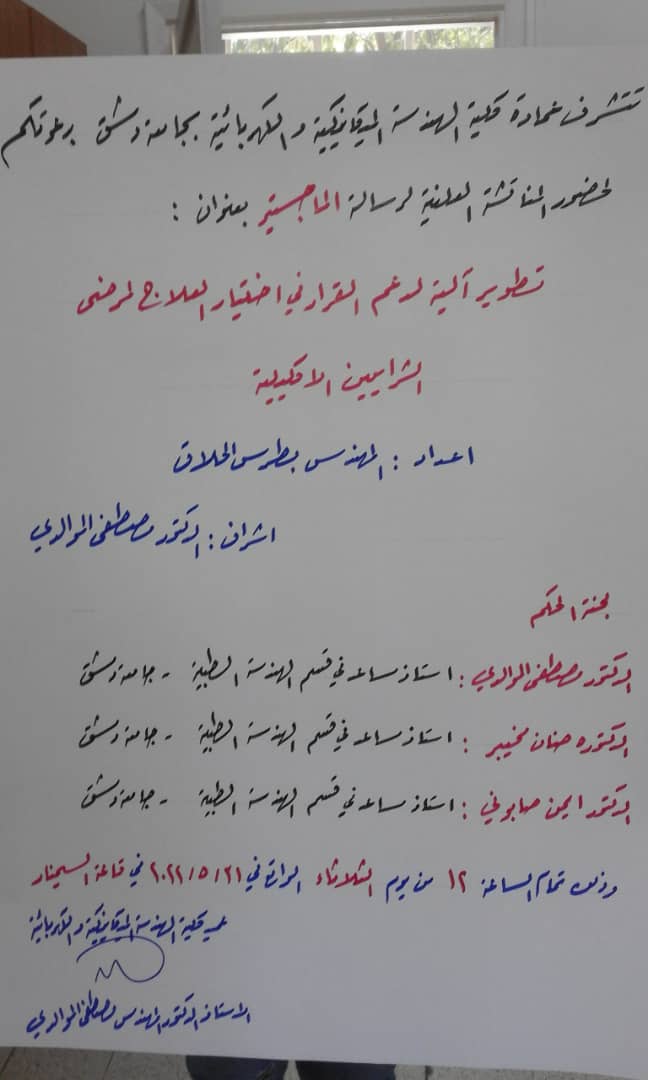 تتشرف عمادة كلية الهندسة الميكانيكية والكهربائية بجامعة دمشق بدعوتكم
لحضور المناقشة العلنية لرسالة الماجستير بعنوان :
تطوير آلية لدعم القرار في اختيار العلاج لمرضى
الشرايين الاكليلية
اعداد : المهندس بطرس الحلاق
اشراف : الدكتور مصطفى الموالدي
لجنة الحكم
الدكتور مصطفى الموالدي : استاذ مساعد في قسم الهندسة الطبية - جامعة دمشق
الدكتوره حنان مخيبر : استاذ مساعد في قسم الهندسة الطبية - جامعة دمشق
الدكتور ايمن صابوني : استاذ مساعد في قسم الهندسة الطبية - جامعة دمشق
وذلك تمام الساعة ١٢ من يوم الثلاثاء الواقع في ٢٠٢٢/٥/٣١ في قاعة السيمنار
عميد كلية الهندسة الميكانيكية والكهربائية
الاستاذ الدكتور المهندس مصطفى الموالدي